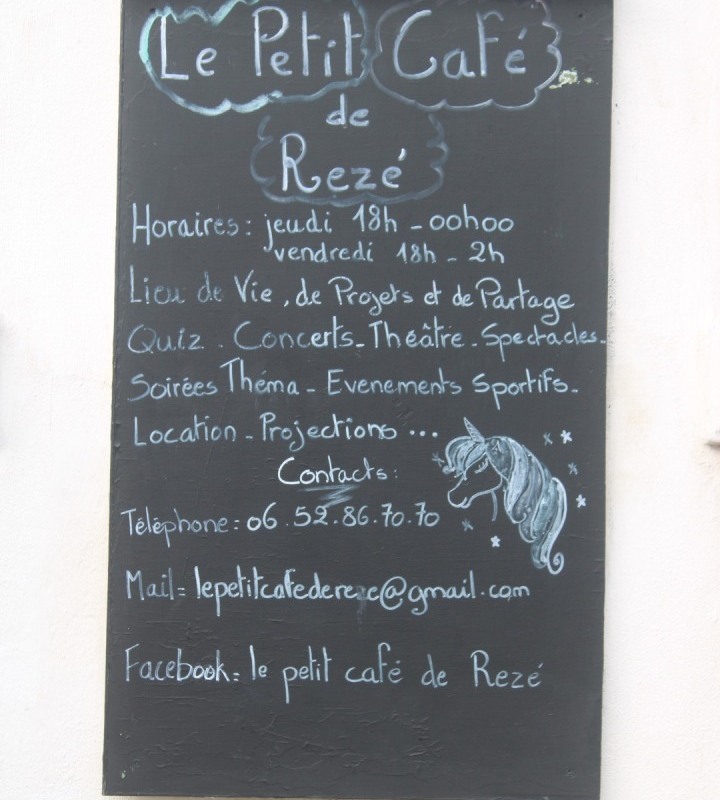 Le Petit Café
de
Rezé
Horaires : jeudi 18h - 00h00
vendredi 18h - 2h
Lieu de Vie, de Projets et de Partage
Quiz . Concerts - Théâtre - Spectacles -
Soirées Théma - Evenements Sportifs -
Location - Projections ...
Contacts :
Téléphone : 06.52.86.70.70
Mail = lepetitcafedereze@gmail.com
Facebook = le petit café de Rezé